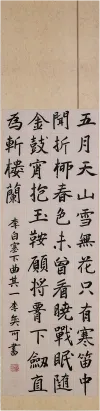 五月天山雪無花只有寒笛中
聞折柳春色未曾看曉戰眠隨
金鼓宵抱玉鞍願將下劍直
為斬樓蘭
李白塞下曲其一 李可書